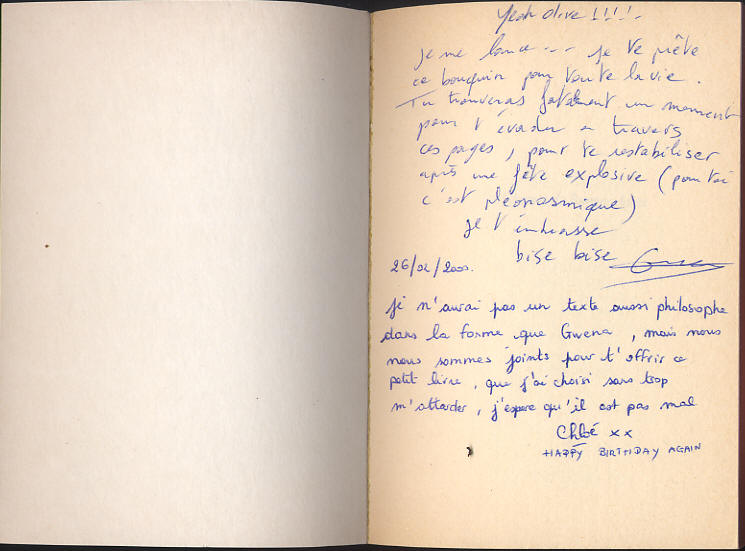 Yeah olive !!!!
je me lance --- je te prête
ce bouquin pour toute la vie.
Tu trouveras fatalement un moment
pour t'évader a travers
ces pages, pour te restabiliser
après une fête explosive (pour toi
c'est pléonasmique)
je t'embrasse
bise bise
26/02/2000.
je n'aurai pas un texte aussi philosophe
dans la forme que Gwena, mais nous
nous sommes joints pour t'offrir ce
petit livre, que j'ai choisi sans trop
m'attarder, j'espere qu'il est pas mal
Chloé xx
HAPPY BIRTHDAY AGAIN